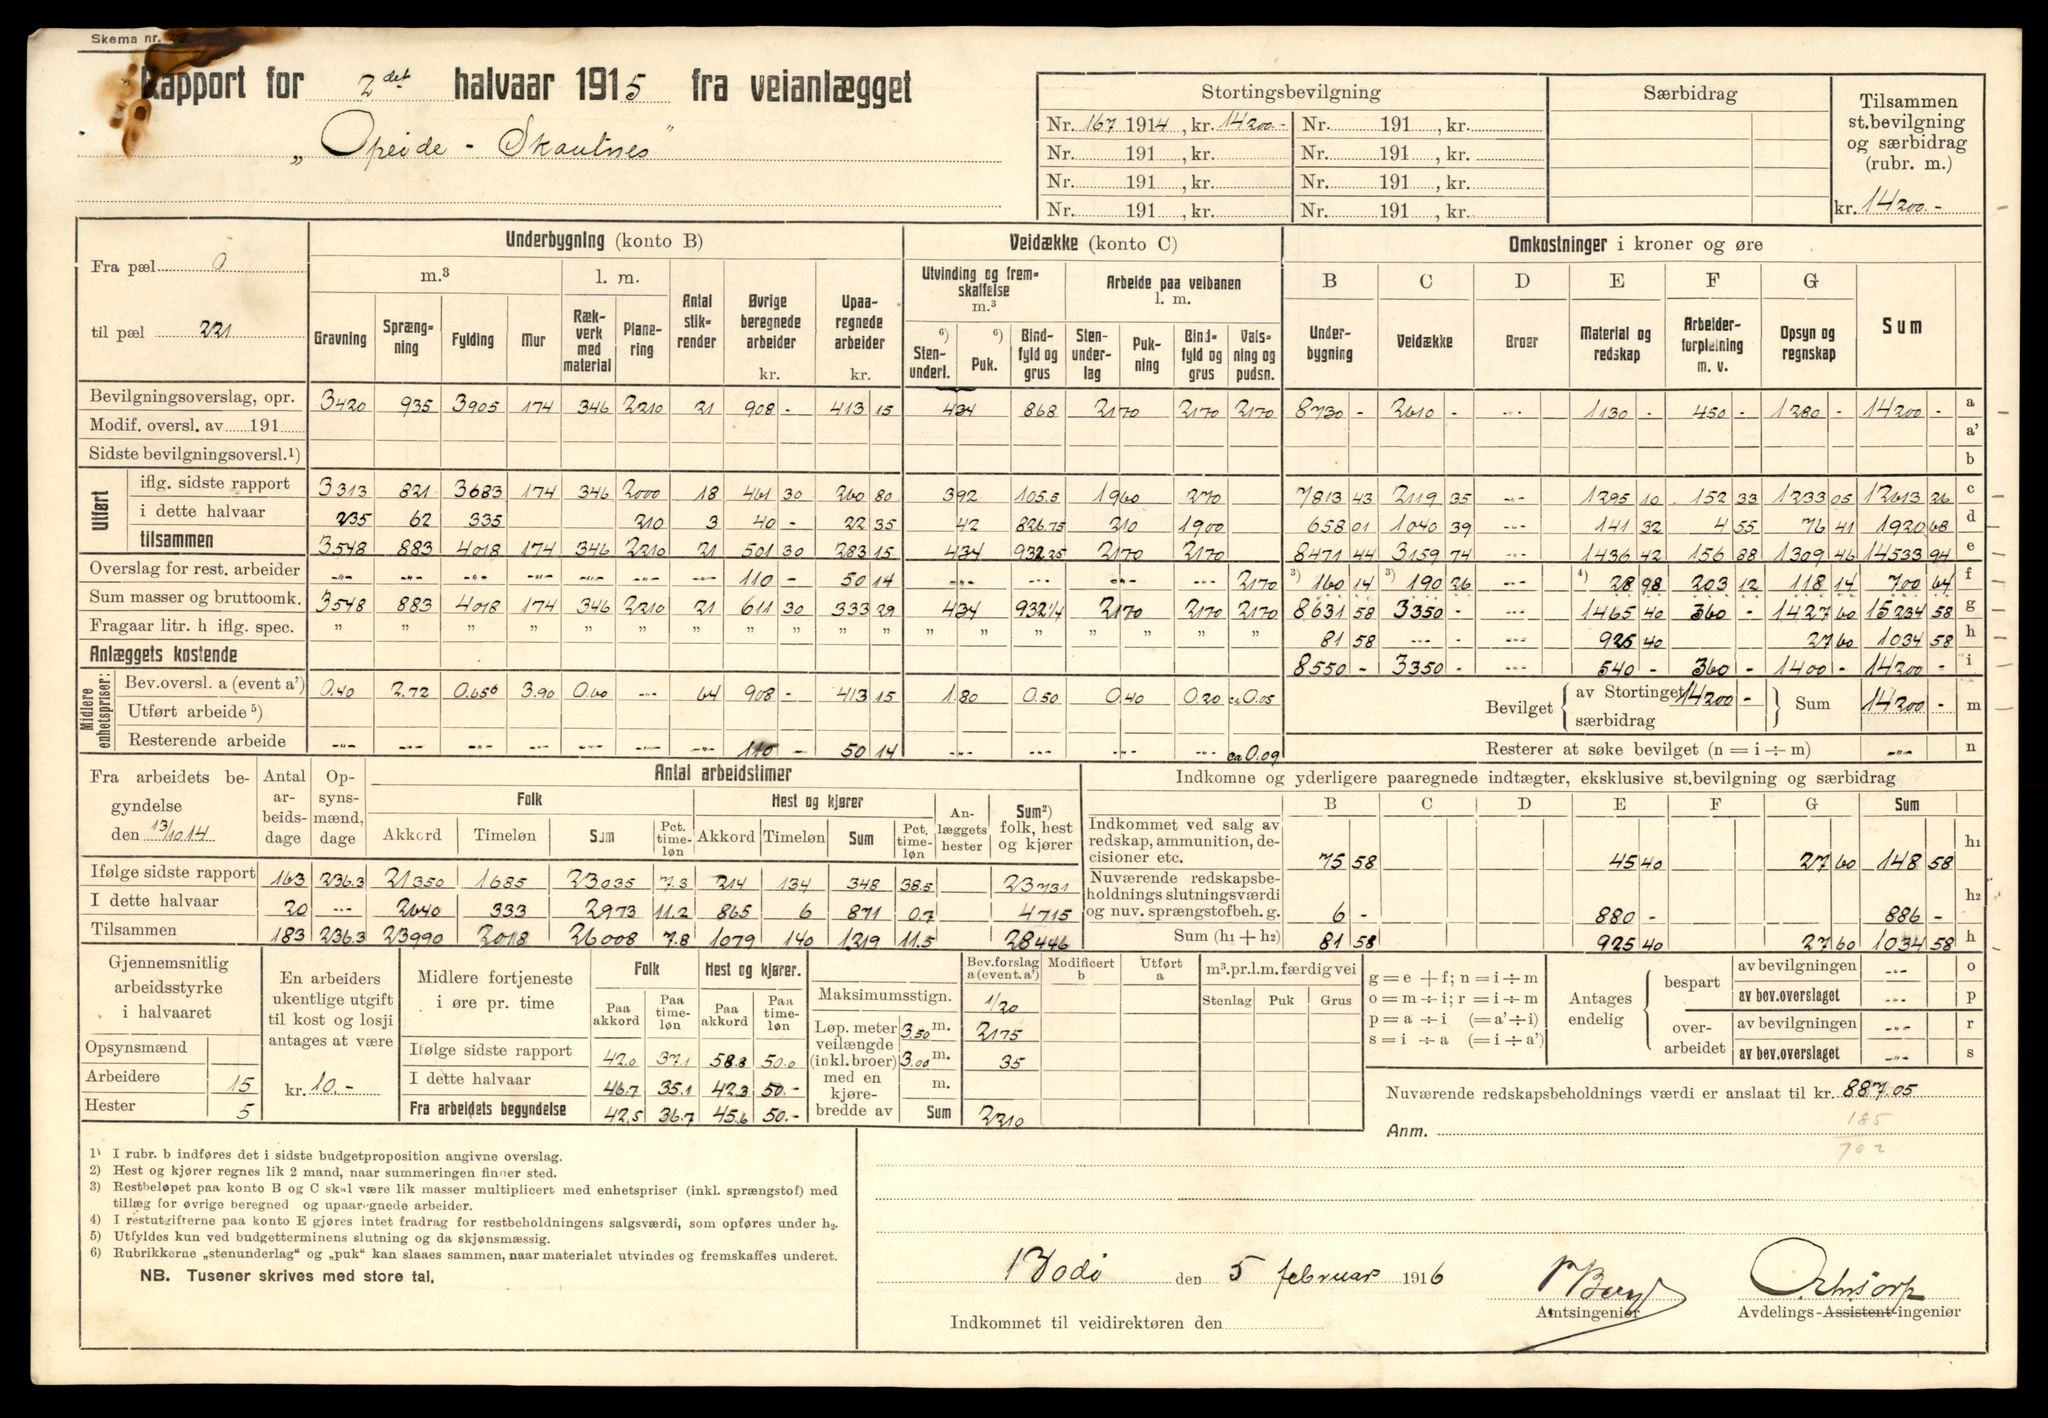 Skema nr.
Rapport for 2det halvaar 1915 fra veianlægget
„Opeide - Skautnes"
Stortingsbevilgning
Særbidrag
Tilsammen st.bevilgning og særbidrag (rubr. m.)
Nr. 167 1914, kr. 14200.- Nr. 191 , kr.
Nr. 191 , kr. Nr. 191 , kr.
Nr. 191 , kr. Nr. 191 , kr.
Nr. 191 , kr. Nr. 191 , kr.
kr. 14200.-
Fra pæl 0
til pæl 221
Underbygning (konto B)
Veidække (konto C)
Omkostninger i kroner og øre
m.³ l. m. Antal stikrender Øvrige beregnede arbeider kr. Upaaregnede arbeider kr.
Utvinding og fremskaffelse m.³ Arbeide paa veibanen l. m.
B C D E F G Sum
Gravning Sprængning Fylding Mur Rækverk med material Planering
6) Stenunderl. 6) Puk. Bindfyld og grus Stenunderlag Pukning Bindfyld og grus Valsning og pudsn.
Underbygning Veidække Broer Material og redskap Arbeiderforpleining m. v. Opsyn og regnskap
Bevilgningsoverslag, opr. 3420 935 3905 174 346 2210 21 908 - 413 15 434 868 2170 2170 2170 8730 - 2610 - -"- 1130 - 450 - 1280 - 14200 - a
Modif. oversl. av 191 a'
Sidste bevilgningsoversl.¹) b
Utført
iflg. sidste rapport 3313 821 3683 174 346 2000 18 461 30 260 80 392 105.5 1960 270 7813 43 2119 35 -"- 1295 10 152 33 1233 05 12613 26 c
i dette halvaar 235 62 335 210 3 40 - 22 35 42 826.75 210 1900 658 01 1040 39 -"- 141 32 4 55 76 41 1920 68 d
tilsammen 3548 883 4018 174 346 2210 21 501 30 283 15 434 932.25 2170 2170 8471 44 3159 74 -"- 1436 42 156 88 1309 46 14533 94 e
Overslag for rest. arbeider -"- -"- -"- -"- -"- -"- -"- 110 - 50 14 -"- -"- -"- -"- 2170 3) 160 14 3) 190 26 4) 28 98 203 12 118 14 700 64 f
Sum masser og bruttoomk. 3548 883 4018 174 346 2210 21 611 30 333 29 434 932¼ 2170 2170 2170 8631 58 3350 - -"- 1465 40 360 - 1427 60 15234 58 g
Fragaar litr. h iflg. spec. " " " " " " " " " " " " " " " " " " " 81 58 -"- -"- 925 40 27 60 1034 58 h
Anlæggets kostende 8550 - 3350 - 540 - 360 - 1400 - 14200 - i
Midlere enhetspriser:
Bev.oversl. a (event a') 0.40 2.72 0.656 3.90 0.60 -"- 64 908 - 413 15 1.80 0.50 0.40 0.20 ca 0.05
Utført arbeide ⁵)
Resterende arbeide -"- -"- -"- -"- -"- -"- -"- 110 - 50 14 -"- -"- -"- -"- ca 0.09
Bevilget { av Stortinget 14200 - særbidrag } Sum 14200 - m
Resterer at søke bevilget (n = i ÷ m) -"- n
Fra arbeidets begyndelse den 13/10 14
Antal arbeidsdage Opsynsmænd, dage
Antal arbeidstimer
Folk Hest og kjører Anlæggets hester Sum²) folk, hest og kjører
Akkord Timeløn Sum Pct. timeløn Akkord Timeløn Sum Pct. timeløn
Ifølge sidste rapport 163 236.3 21350 1685 23035 7.3 214 134 348 38.5 23731
I dette halvaar 20 -"- 2640 333 2973 11.2 865 6 871 0.7 4715
Tilsammen 183 236.3 23990 2018 26008 7.8 1079 140 1219 11.5 28446
Indkomne og yderligere paaregnede indtægter, eksklusive st.bevilgning og særbidrag
B C D E F G Sum
Indkommet ved salg av redskap, ammunition, decisioner etc. 75 58 45 40 27 60 148 58 h1
Nuværende redskapsbeholdnings slutningsværdi og nuv. sprængstofbeh. g. 6 - 880 - 886 - h2
Sum (h1 + h2) 81 58 925 40 27 60 1034 58 h
Gjennemsnitlig arbeidsstyrke i halvaaret
Opsynsmænd
Arbeidere 15
Hester 5
En arbeiders ukentlige utgift til kost og losji antages at være
kr. 10.-
Midlere fortjeneste i øre pr. time
Folk Hest og kjører.
Paa akkord Paa timeløn Paa akkord Paa timeløn
Ifølge sidste rapport 42.0 37.1 58.8 50.0
I dette halvaar 46.7 35.1 42.3 50.-
Fra arbeidets begyndelse 42.5 36.7 45.6 50.-
Bev.forslag a (event. a') Modificert b Utført a
Maksimumsstign. 1/20
Løp. meter veilængde (inkl. broer) med en kjørebredde av
3.50 m. 2175
3.00 m. 35
m.
Sum 2210
m³. pr. l. m. færdig vei
Stenlag Puk Grus
g = e + f; n = i ÷ m
o = m ÷ i; r = i ÷ m
p = a ÷ i (= a' ÷ i)
s = i ÷ a (= i ÷ a')
Antages endelig
bespart av bevilgningen -"- o
av bev.overslaget -"- p
overarbeidet av bevilgningen -"- r
av bev.overslaget -"- s
Nuværende redskapsbeholdnings værdi er anslaat til kr. 887.05
185
702
Anm.
1) I rubr. b indføres det i sidste budgetproposition angivne overslag.
2) Hest og kjører regnes lik 2 mand, naar summeringen finder sted.
3) Restbeløpet paa konto B og C skal være lik masser multiplicert med enhetspriser (inkl. sprængstof) med
tillæg for øvrige beregned og upaaregnede arbeider.
4) I restutgifterne paa konto E gjøres intet fradrag for restbeholdningens salgsværdi, som opføres under h2.
5) Utfyldes kun ved budgetterminens slutning og da skjønsmæssig.
6) Rubrikkerne „stenunderlag" og „puk" kan slaaes sammen, naar materialet utvindes og fremskaffes underet.
NB. Tusener skrives med store tal.
Bodö den 5 februar 1916
Indkommet til veidirektøren den
Amtsingeniør
Avdelings-Assistent-ingeniør